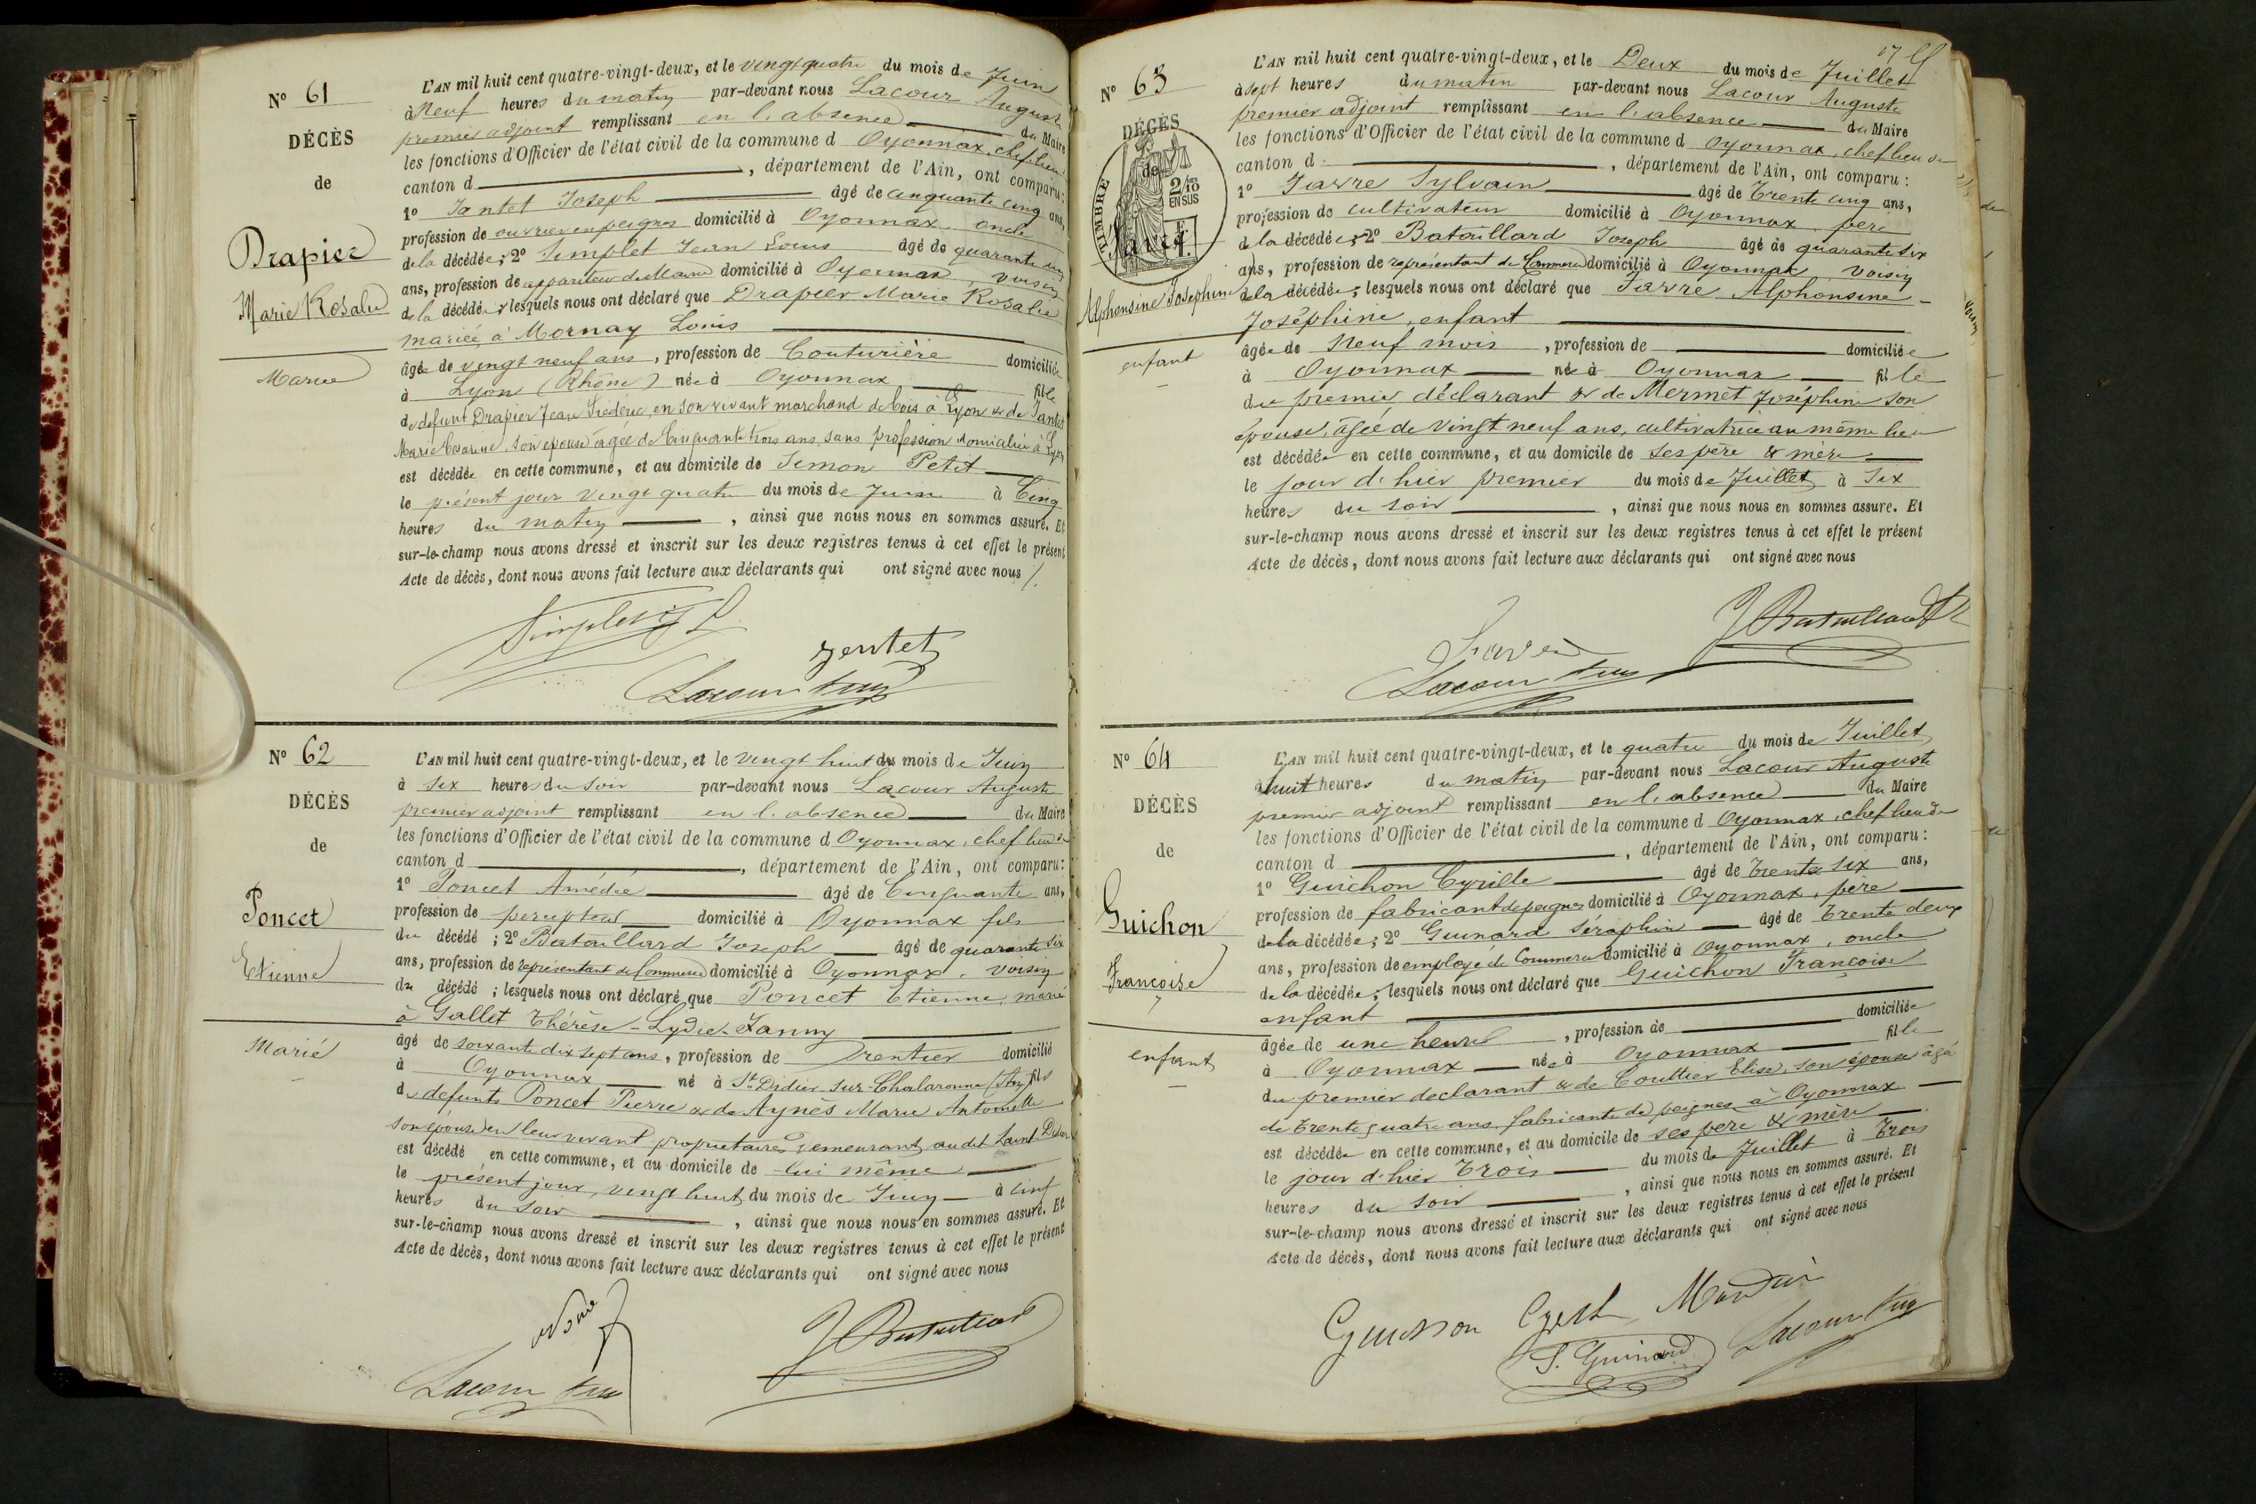 N° 61
DÉCÈS
de
Drapier
Marie Rosalie
Mariée
L'AN mil huit cent quatre-vingt-deux, et le vingt quatre du mois de Juin
à Neuf heures du matin par-devant nous Lacour Auguste
premier adjoint remplissant en l'absence du Maire
les fonctions d'Officier de l'état civil de la commune d Oyonnax, chef lieu
canton d , département de l'Ain, ont comparu:
1° Jantet Joseph âgé de cinquante cinq ans,
profession de ouvrier en peignes domicilié à Oyonnax, oncle
de la décédée; 2° Simplet Jean Louis âgé de quarante
ans, profession de appariteur de Mairie domicilié à Oyonnax, voisin
de la décédée; lesquels nous ont déclaré que Drapier Marie Rosalie
mariée à Mornay Louis
âgée de vingt neuf ans, profession de Couturière domiciliée
à Lyon (Rhône) née à Oyonnax fille
de défunt Drapier Jean Frédéric, en son vivant marchand de bois à Lyon & de Jantet
Marie , son épouse âgée de Cinquante trois ans, sans profession domiciliée à Lyon
est décédée en cette commune, et au domicile de Simon Petit
le présent jour vingt quatre du mois de Juin à Cinq
heures du matin , ainsi que nous nous en sommes assuré. Et
sur-le-champ nous avons dressé et inscrit sur les deux registres tenus à cet effet le présent
Acte de décès, dont nous avons fait lecture aux déclarants qui ont signé avec nous /.
Simplet J L
Jentet
Lacour
N° 62
DÉCÈS
de
Poncet
Etienne
Marié
L'AN mil huit cent quatre-vingt-deux, et le vingt huit du mois de Juin
à six heures du soir par-devant nous Lacour Auguste
premier adjoint remplissant en l'absence du Maire
les fonctions d'Officier de l'état civil de la commune d Oyonnax, chef lieu de
canton d , département de l'Ain, ont comparu:
1° Poncet Amédée âgé de Cinquante ans,
profession de percepteur domicilié à Oyonnax fils
du décédé ; 2° Bataillard Joseph âgé de quarante six
ans, profession de représentant de Commerce domicilié à Oyonnax, voisin
du décédé ; lesquels nous ont déclaré que Poncet Etienne, marié
à Gallet Thérèse-Lydie-Fanny
âgé de soixante dix sept ans, profession de rentier domicilié
à Oyonnax né à St Didier-sur-Chalaronne (Ain) fils
de défunts Poncet Pierre & de Aynès Marie Antoinette
son épouse en leur vivant propriétaires demeurant audit Saint Didier
est décédé en cette commune, et au domicile de lui même
le présent jour, vingt huit du mois de Juin à cinq
heures du soir , ainsi que nous nous en sommes assuré. Et
sur-le-champ nous avons dressé et inscrit sur les deux registres tenus à cet effet le présent
Acte de décès, dont nous avons fait lecture aux déclarants qui ont signé avec nous
J Bataillard
Lacour
N° 63
DÉCÈS
de
TIMBRE
2/10 EN SUS
Favre
Alphonsine Joséphine
enfant
L'AN mil huit cent quatre-vingt-deux, et le Deux du mois de Juillet
à sept heures du matin par-devant nous Lacour Auguste
premier adjoint remplissant en l'absence du Maire
les fonctions d'Officier de l'état civil de la commune d Oyonnax, chef lieu de
canton d , département de l'Ain, ont comparu:
1° Favre Sylvain âgé de Trente cinq ans,
profession de cultivateur domicilié à Oyonnax père
de la décédée; 2° Bataillard Joseph âgé de quarante six
ans, profession de représentant de Commerce domicilié à Oyonnax, voisin
de la décédée; lesquels nous ont déclaré que Favre Alphonsine-
Joséphine, enfant
âgée de Neuf mois , profession de domiciliée
à Oyonnax née à Oyonnax fille
du premier déclarant & de Mermet Joséphine son
épouse, âgée de vingt neuf ans, cultivatrice au même lieu
est décédée en cette commune, et au domicile de ses père & mère
le jour d'hier premier du mois de Juillet à Six
heures du soir , ainsi que nous nous en sommes assuré. Et
sur-le-champ nous avons dressé et inscrit sur les deux registres tenus à cet effet le présent
Acte de décès, dont nous avons fait lecture aux déclarants qui ont signé avec nous
J Bataillard
Lacour
N° 64
DÉCÈS
de
Guichon
Françoise
enfant
L'AN mil huit cent quatre-vingt-deux, et le quatre du mois de Juillet
à huit heures du matin par-devant nous Lacour Auguste
premier adjoint remplissant en l'absence du Maire
les fonctions d'Officier de l'état civil de la commune d Oyonnax, chef lieu de
canton d , département de l'Ain, ont comparu:
1° Guichon Cyrille âgé de Trente six ans,
profession de fabricant de peignes domicilié à Oyonnax, père
de la décédée; 2° Guinard Séraphin âgé de Trente deux
ans, profession de employé de Commerce domicilié à Oyonnax, oncle
de la décédée; lesquels nous ont déclaré que Guichon Françoise
enfant
âgée de une heure , profession de domiciliée
à Oyonnax née à Oyonnax fille
du premier déclarant & de Coultier Elise, son épouse âgée
de Trente quatre ans fabricante de peignes à Oyonnax
est décédée en cette commune, et au domicile de ses père & mère
le jour d'hier Trois du mois de Juillet à Trois
heures du soir , ainsi que nous nous en sommes assuré. Et
sur-le-champ nous avons dressé et inscrit sur les deux registres tenus à cet effet le présent
Acte de décès, dont nous avons fait lecture aux déclarants qui ont signé avec nous
S. Guinard
Lacour